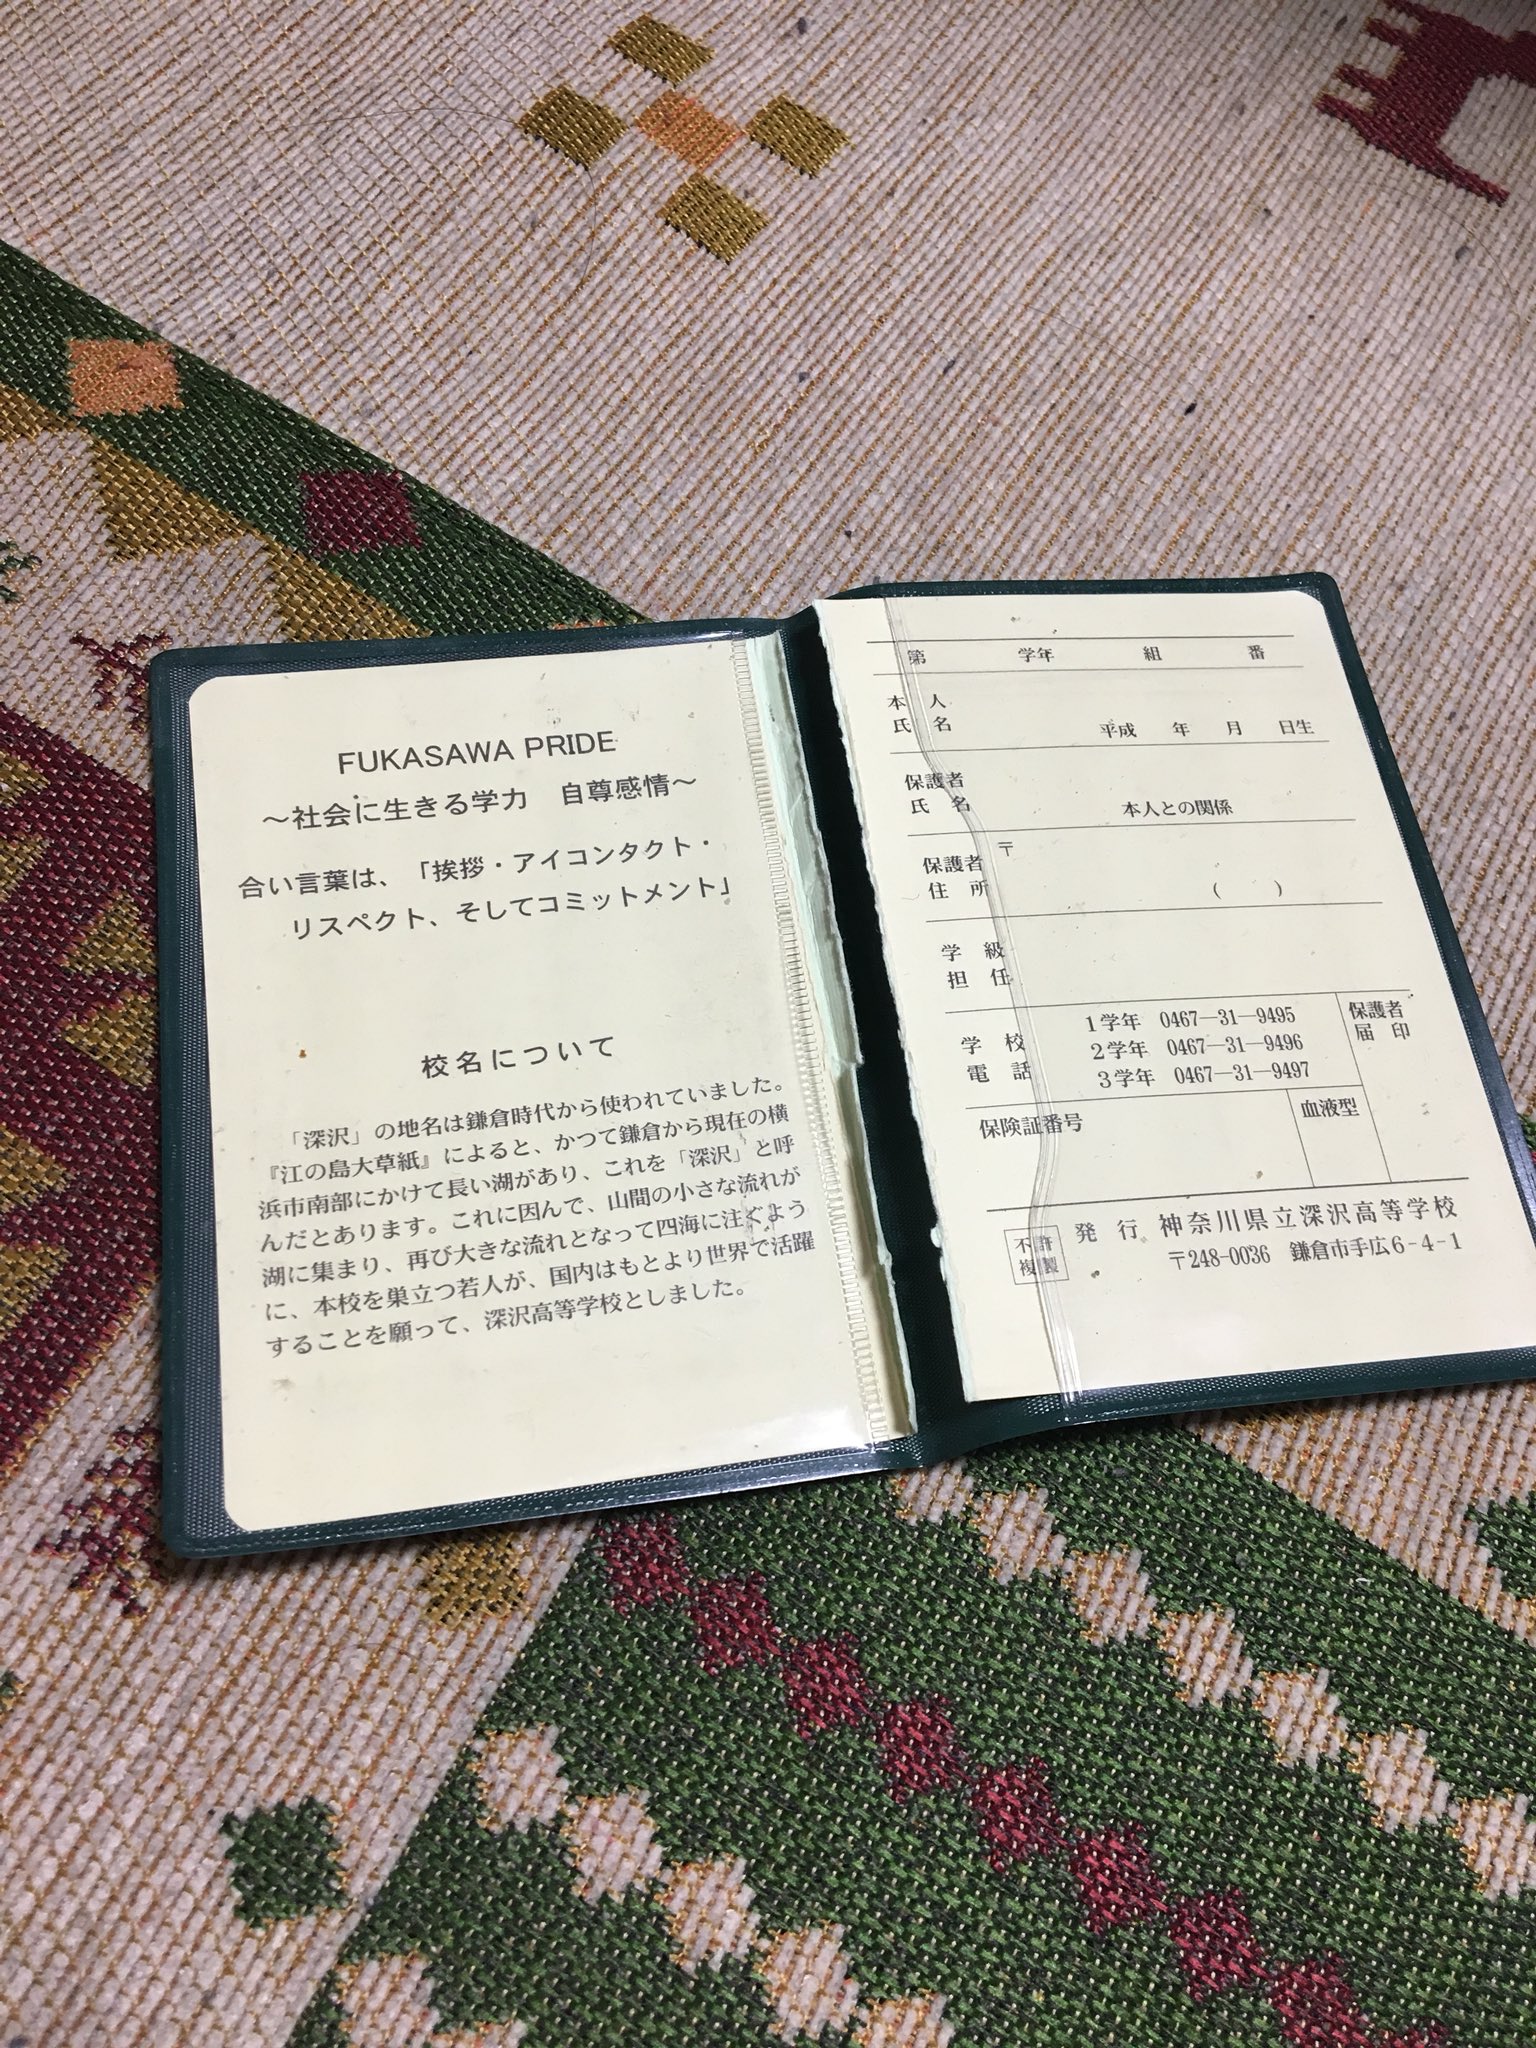 FUKASAWA PRIDE
～社会に生きる学力　自尊感情～
合い言葉は、「挨拶・アイコンタクト・
リスペクト、そしてコミットメント」
校名について
「深沢」の地名は鎌倉時代から使われていました。
『江の島大草紙』によると、かつて鎌倉から現在の横
浜市南部にかけて長い湖があり、これを「深沢」と呼
んだとあります。これに因んで、山間の小さな流れが
湖に集まり、再び大きな流れとなって四海に注ぐよう
に、本校を巣立つ若人が、国内はもとより世界で活躍
することを願って、深沢高等学校としました。
第　学年　組　番
本人
氏名　平成　年　月　日生
保護者
氏名　本人との関係
保護者　〒
住所　(　)
学級
担任
学校
電話
1学年　0467―31―9495
2学年　0467―31―9496
3学年　0467―31―9497
保護者
届印
保険証番号　血液型
不許
複製
発行　神奈川県立深沢高等学校
〒248-0036　鎌倉市手広6-4-1